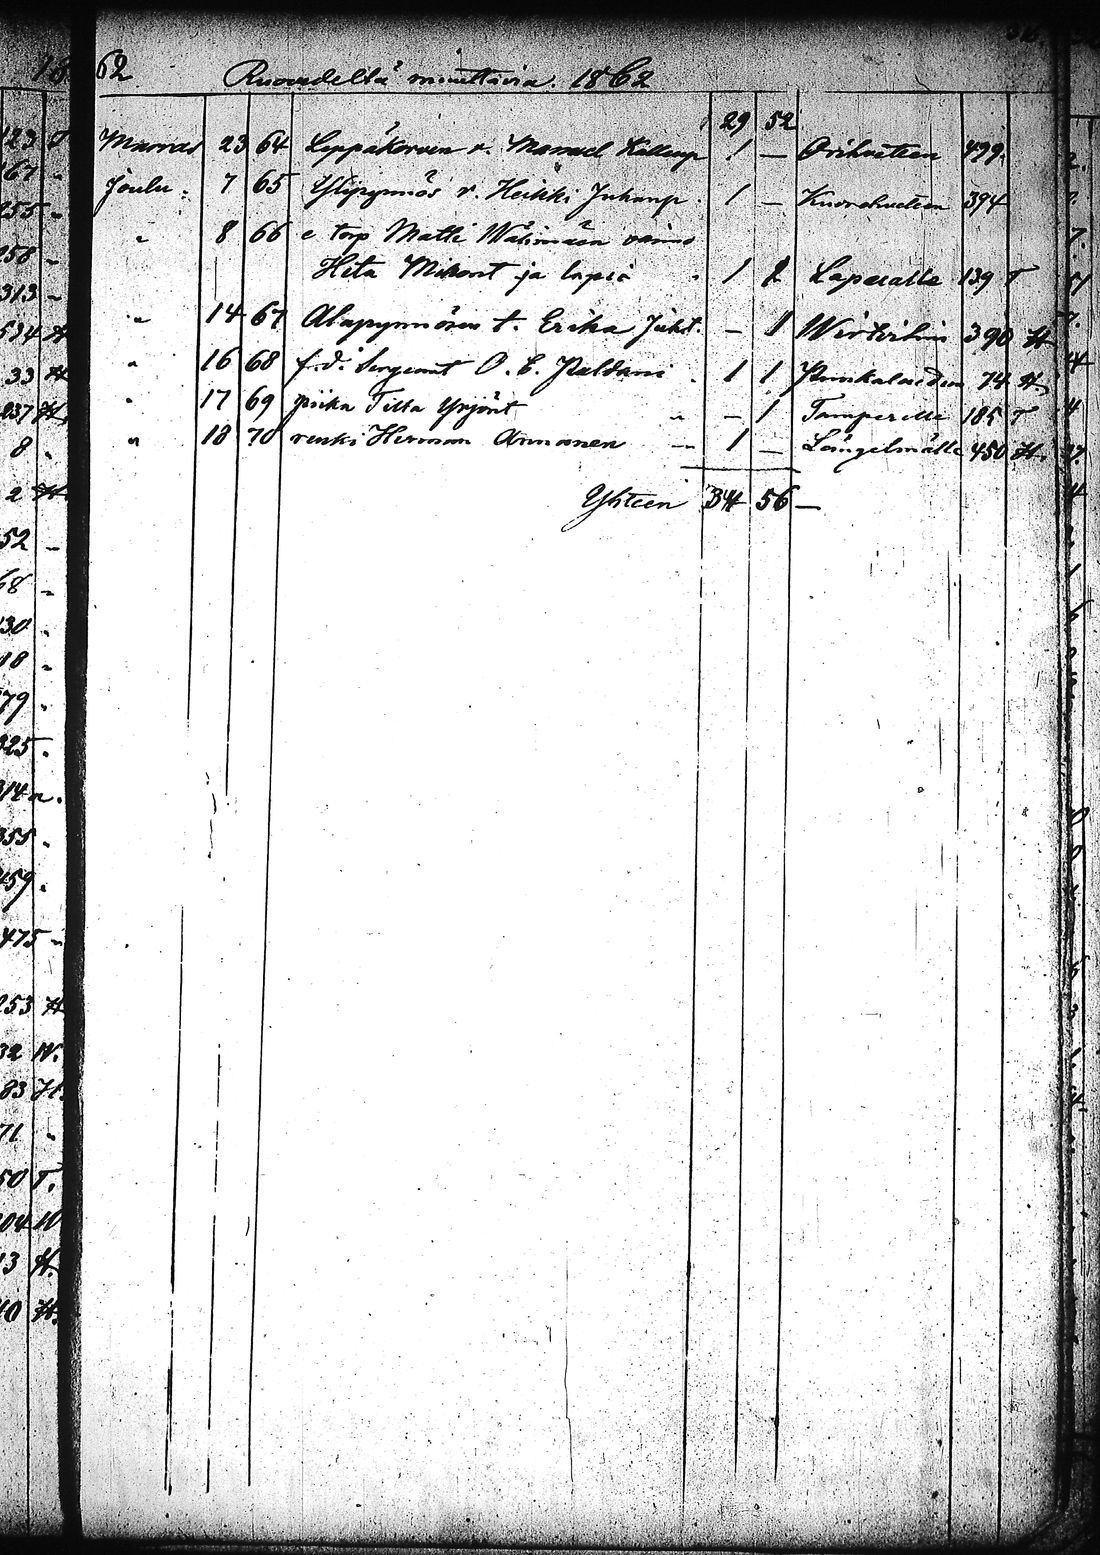 62 Ruovedeltä muuttavia. 1862
29 52
Marras 23 64 Leppäkorven r. Manuel Kallenp 1 — Oriveteen 499.
Joulu: 7 65 Ylipynnös r. Heikki Juhanp. 1 — Kuorehveteen 394
" 8 66 e torp Matti Wälimäen vaimo
Heta Mikont ja lapsia 1 2 Lapualle 139 T
" 14 67 Alapynnösen t. Erika Juht. — 1 Wirtoihin 390 H
" 16 68 f.d. Sergeant O. E. Paldani 1 1 Punkalaidun 74 H.
" 17 69 piika Tilta Yrjönt " — 1 Tampereelle 185 T
" 18 70 renki Herman Ammonen — 1 — Längelmälle 450 H.
Yhteen 34 56 —
123 T
167 "
255 "
258 "
313 "
534 H
33 H
237 H.
8 "
2 H.
52 "
68 "
130 "
18 "
79 "
325 "
314 "
355 "
459 "
475 "
253 H
32 W.
83 H.
71 "
50 T.
104 W
13 H.
10 H.